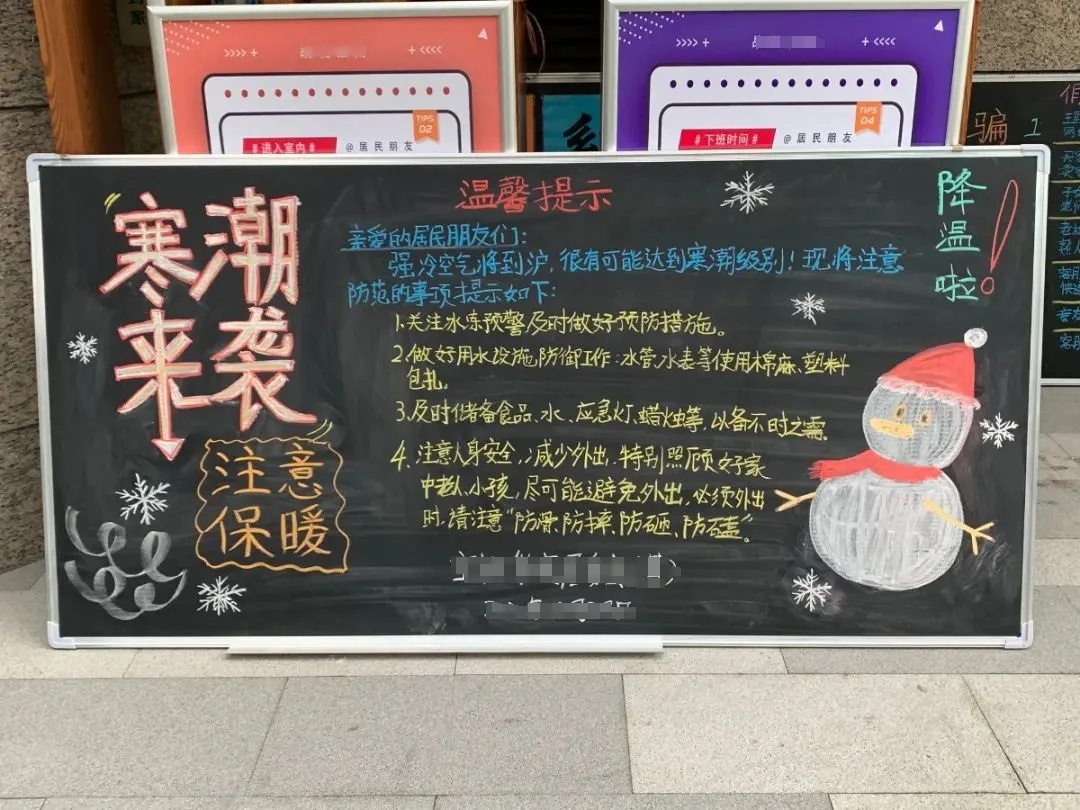 TIPS
02
# 进入室内 #
@居民朋友
TIPS
04
# 下班时间 #
@居民朋友
骗
1
寒潮
来袭
注意
保暖
温馨提示
亲爱的居民朋友们:
强冷空气将到沪,很有可能达到寒潮级别!现将注意
防范的事项提示如下:
1.关注冰冻预警及时做好预防措施。
2.做好用水设施防御工作:水管、水表等使用棉麻、塑料
包扎。
3.及时储备食品、水、应急灯、蜡烛等,以备不时之需。
4.注意人身安全,减少外出,特别照顾好家
中老人、小孩,尽可能避免外出,必须外出
时,请注意“防滑、防摔、防砸、防
降
温
啦!